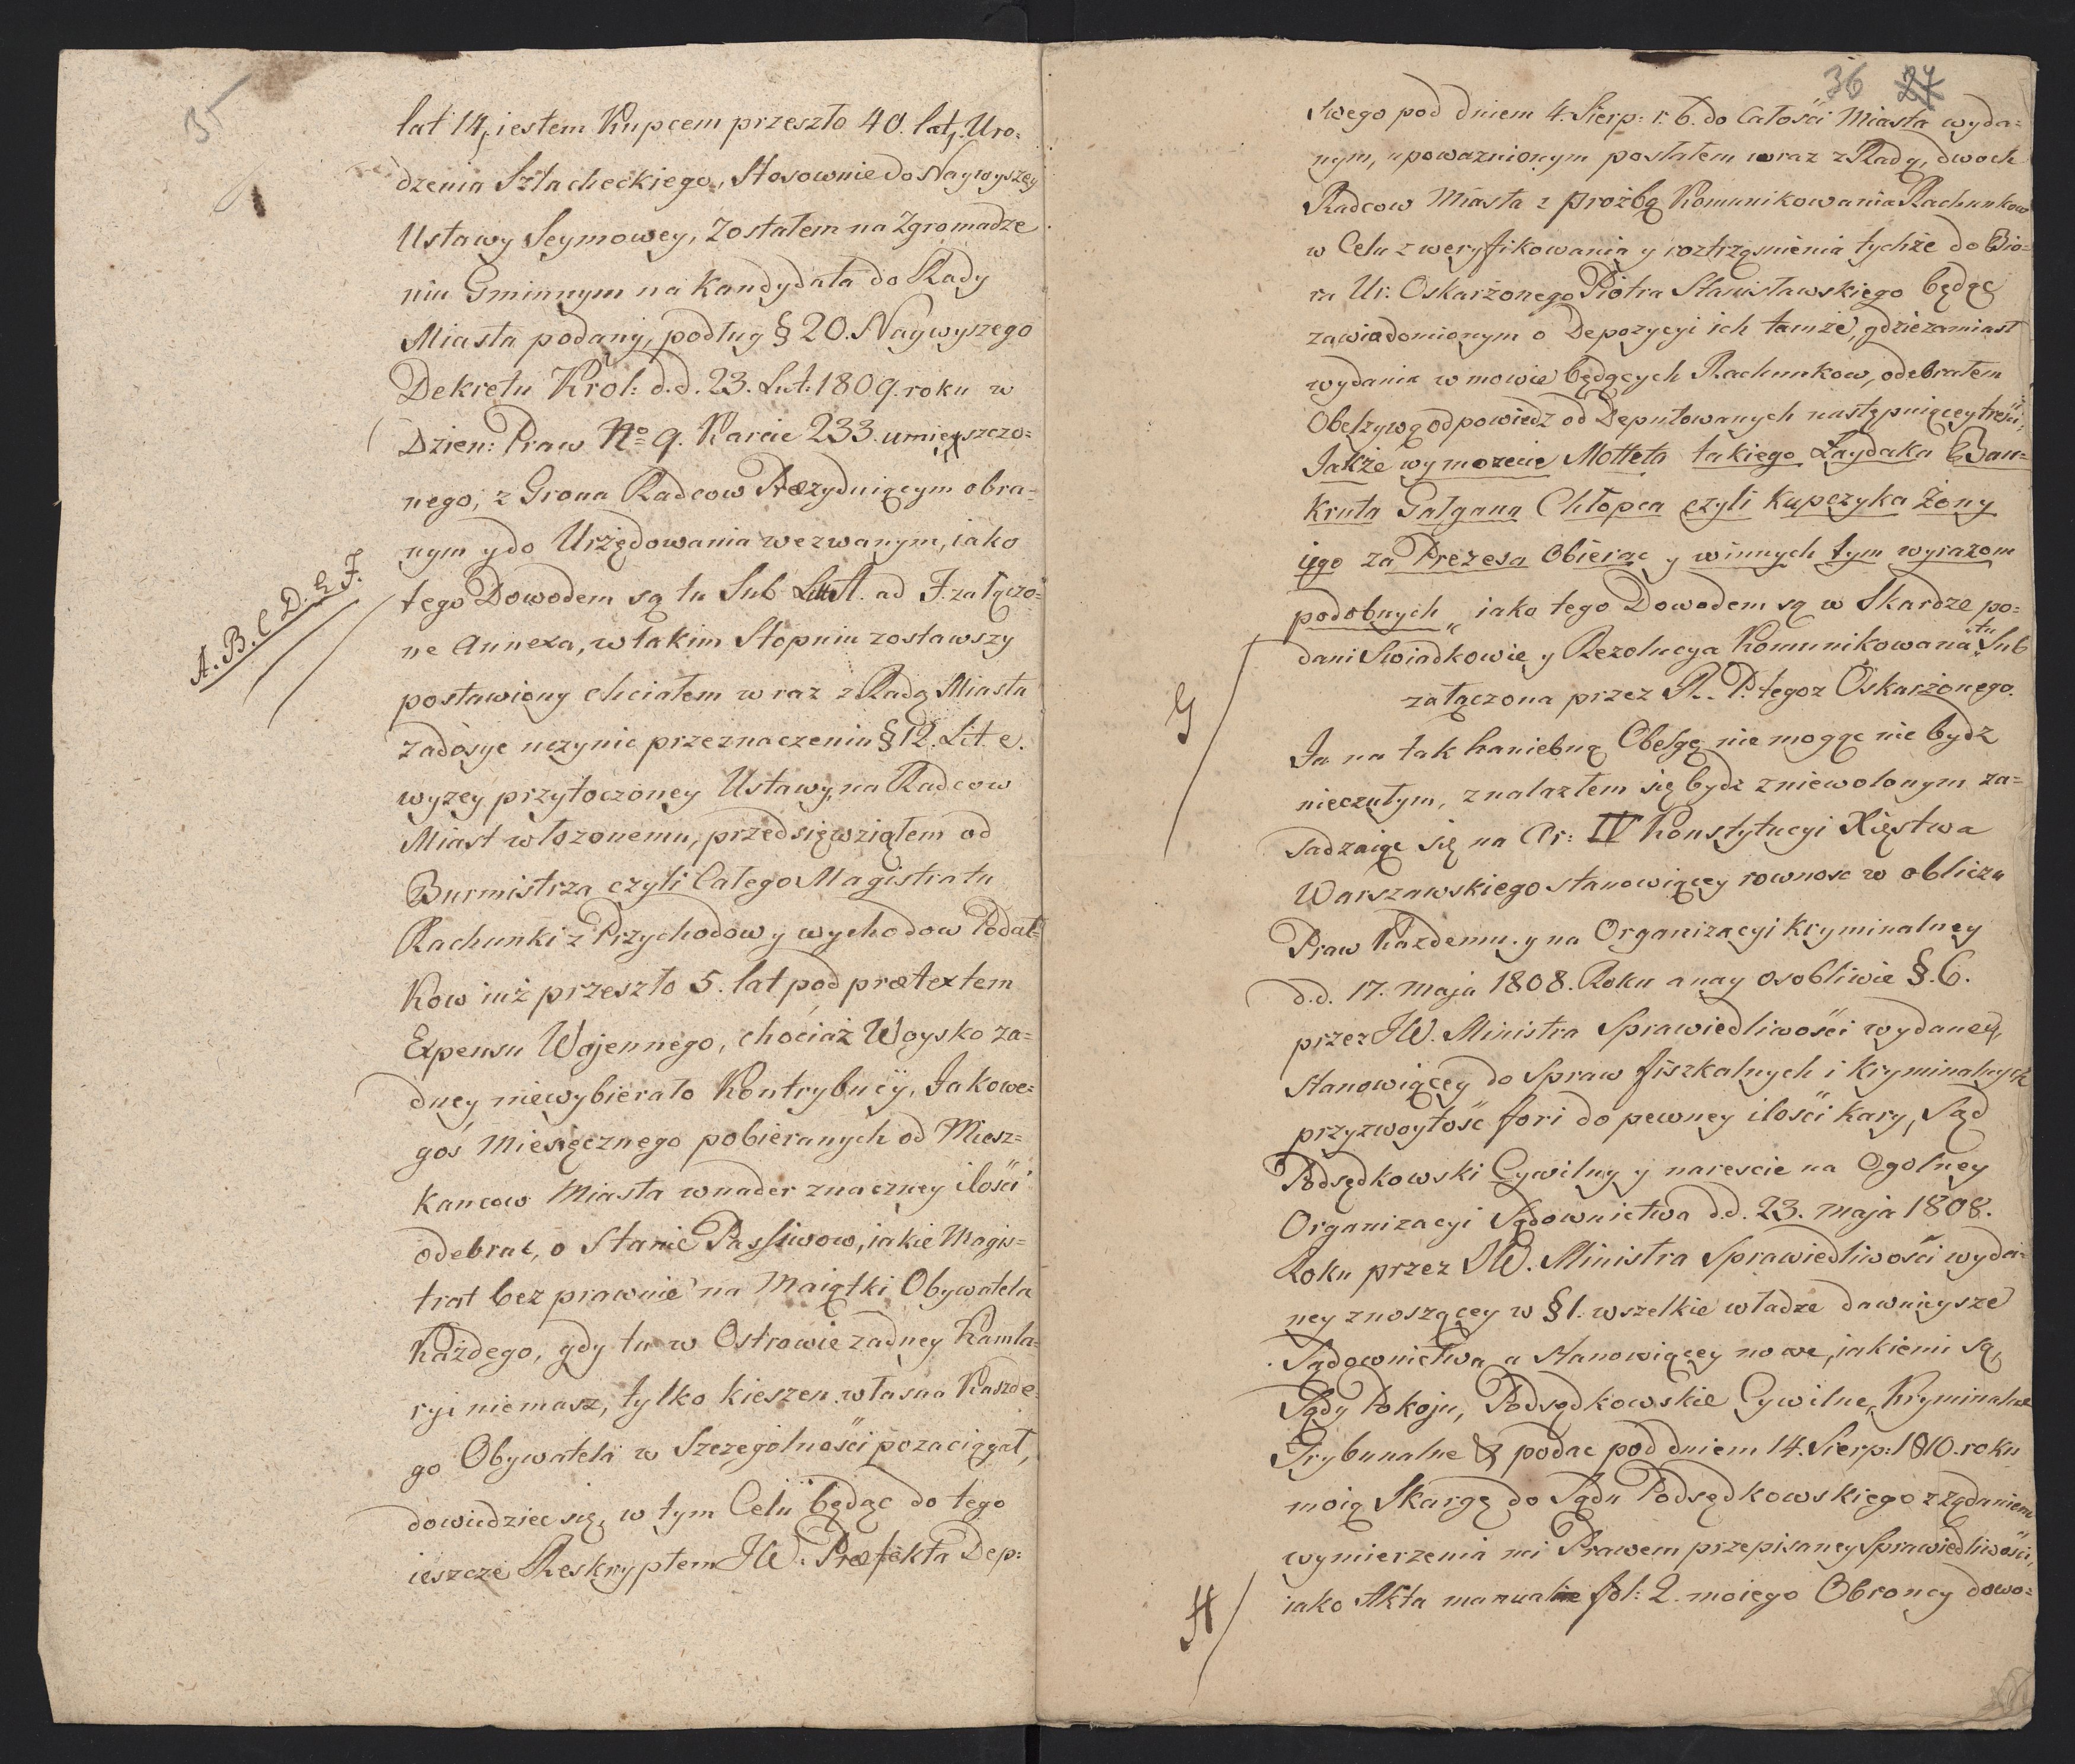 35
lat 14, iestem Kupcem przeszło 40. lat, Uro=
dzenia Szlacheckiego, Stosownie do Naywyszey
Ustawy Seymowey, Zostałem na Zgromadze
niu Gminnym na Kandydata do Rady
Miasta podany, podług § 20. Naywyszego
Dekretu Krol: d.d. 23. Lut: 1809. roku w
Dzien: Praw No 9. Karcie 233. umieszczo=
nego, z Grona Radcow Prezyduiącym obra=
nym y do Urzędowania wezwanym, iako
A. B. C. D. E. F.
tego Dowodem są tu Sub Litt A. ad F. załączo=
ne Annexa, w takim Stopniu zostawszy
postawiony chciałem wraz z Radą Miasta
zadosyc uczynic przeznaczeniu § 12. Lit. e.
wyzey przytoczoney Ustawy, na Radcow
Miast włozonemu, przedsięwziąłem od
Burmistrza czyli Całego Magistratu
Rachunki z Przychodow y wychodow Podat=
kow iuż przeszło 5. lat pod prætextem
Expensu Wojennego, chociaż Woysko za=
dney niewybierało Kontrybucÿi, Jakowe=
goś Miesięcznego pobieranych od Miesz=
kancow Miasta w nader znaczney ilości
odebrać, o Stanie Passiwow, iakie Magis=
trat bez prawnie na Maiątki Obywatela
Każdego, gdy tu w Ostrowie zadney Kamla=
ryi niemasz, tylko kieszen własna Kazde=
go Obywatela w Szczegolności pozaciągał,
dowiedziec się, w tym Celu będąc do tego
ieszcze Reskryptem JW. Præfekta Dep:
36 27
swego pod dniem 4. Sierp: r. b. do Całości Miasta wyda=
nym, upowaznionym posłałem wraz z Radą, dwoch
Radcow Miasta z prozbą Komunikowania Rachunkow
w Celu zweryfikowania y roztrząsnienia tychże do Bio=
ra Ur: Oskarżonego Piotra Stanisławskiego będąc
zawiadomionym o Depozycyi ich tamże, gdzie zamiast
wydania w mowie będących Rachunkow, odebrałem
Obelzywą odpowiedz od Deputowanych następuiącey treści,
Jakże wy mozecie Motteta takiego Łaydaka Ban=
kruta Gałgana Chłopca czyli Kupczyka Żony
iego za Prezesa Obierac y winnych tym wyrazom
podobnych „ iako tego Dowodem są w Skardze po=
dani Swiadkowie y Rezolucya Komunikowana tu Sub
G
załączona przez R. P. tegoz Oskarżonego.
Ja na tak haniebną Obelgę nie mogąc nie bydz
nieczułym, znalazłem się bydz zniewolonym za=
sadzaiąc się na Ar: IV Konstytucyi Xięstwa
Warszawskiego stanowiącey rownosc w obliczu
Praw Kazdemu. y na Organizacyi Kryminalney
d.d. 17. Maja 1808. Roku a nay osobliwie §. 6.
przez JW. Ministra Sprawiedliwości wydaney,
stanowiącey do Spraw fiszkalnych i Kryminalnych
przyzwoytość fori do pewney ilości kary, Sąd
Podsędkowski Cywilny y narescie na Ogolney
Organizacyi Sądownictwa d.d. 23. Maja 1808.
Roku przez JW. Ministra Sprawiedliwości wyda=
ney znoszącey w § 1. wszelkie władze dawnieysze
Sądownictwa a stanowiącey nowe, iakiemi są,
Sądy Pokoju, Podsędkowskie Cywilne, Kryminalne
Trybunalne & podac pod dniem 14. Sierp: 1810. roku
moią Skargę do Sądu Podsędkowskiego z ządaniem
wymierzenia mi Prawem przepisaney Sprawiedliwości,
H
iako Akta manualne fol: 2. moiego Obroncy dowo=